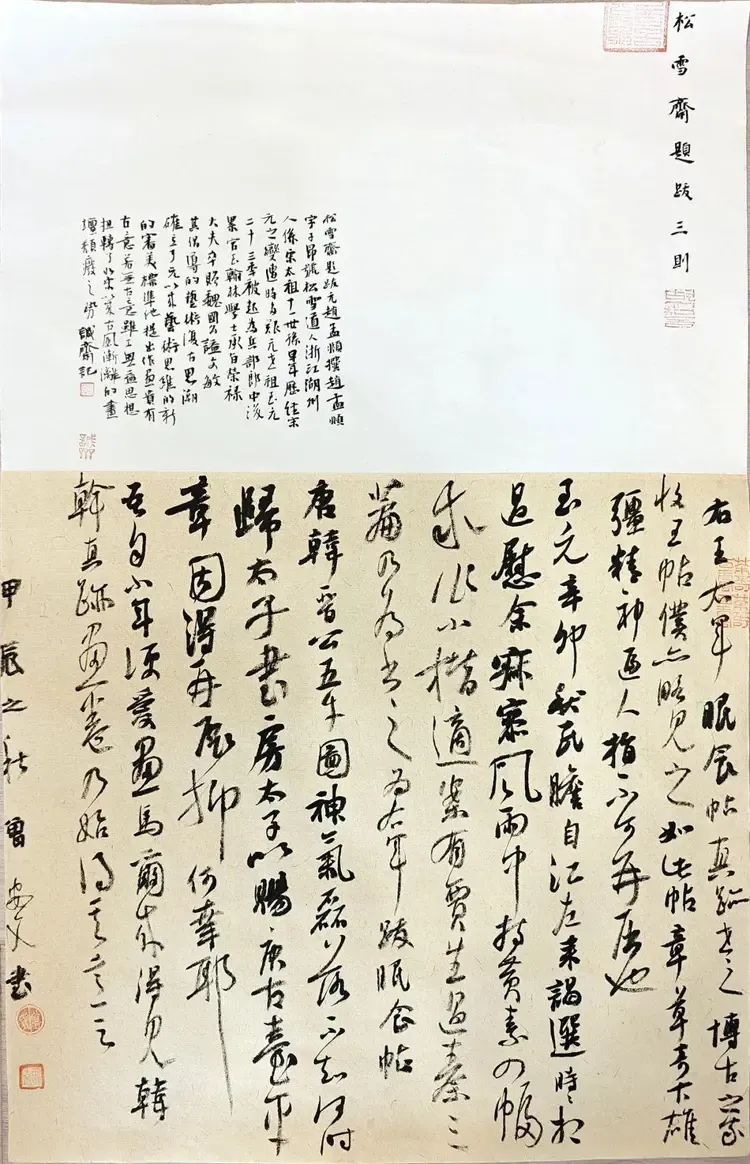 松雪齋題跋三則
松雪齋題跋元趙孟頫撰趙孟頫
字子昂號松雪道人浙江湖州
人係宋太祖十一世孫早年歷經宋
元之變遭時勢艱元世祖至元
二十三年被起為兵部郎中後
累官至翰林學士承旨榮祿
大夫卒贈魏國公諡文敏
其倡導的藝術復古思潮
確立了元以來藝術思維的新
的審美標準他提出作畫貴有
古意若無古意雖工無益思想
扭轉了北宋以來古風漸漓的畫
壇頹廢之勢 齋記
右王右軍眠食帖真跡 博古之家
收王帖僕亦略見之如此帖章草奇古雄
彊精神逼人指不可再屈也
至元辛卯秋民瞻自江左來謁選時時相
過慰余寂寥風雨中持黃素四幅
求作小楷適案有賈生過秦三
篇乃為書之為右軍跋眠食帖
唐韓晉公五牛圖神氣磊落不知何時
歸太子書房太子以賜唐古臺平
章因得再展抑何幸耶
吾自小年便愛畫馬爾來得見韓
幹真跡畫卷乃始得其意云
甲辰之秋曾 書